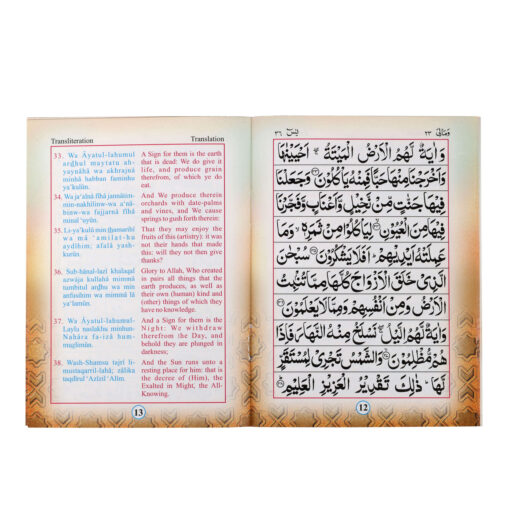 وَمَالِيَ ٢٣ يٰسٓ ٣٦
وَاٰيَةٌ لَّهُمُ الْاَرْضُ الْمَيْتَةُ ۖ اَحْيَيْنٰهَا
وَاَخْرَجْنَا مِنْهَا حَبًّا فَمِنْهُ يَاْكُلُوْنَ ٣٣ وَجَعَلْنَا
فِيْهَا جَنّٰتٍ مِّنْ نَّخِيْلٍ وَّاَعْنَابٍ وَّفَجَّرْنَا
فِيْهَا مِنَ الْعُيُوْنِ ٣٤ لِيَاْكُلُوْا مِنْ ثَمَرِهٖ ۙ وَمَا
عَمِلَتْهُ اَيْدِيْهِمْ ؕ اَفَلَا يَشْكُرُوْنَ ٣٥ سُبْحٰنَ
الَّذِيْ خَلَقَ الْاَزْوَاجَ كُلَّهَا مِمَّا تُنْۢبِتُ
الْاَرْضُ وَمِنْ اَنْفُسِهِمْ وَمِمَّا لَا يَعْلَمُوْنَ ٣٦
وَاٰيَةٌ لَّهُمُ الَّيْلُ ۖ نَسْلَخُ مِنْهُ النَّهَارَ فَاِذَا
هُمْ مُّظْلِمُوْنَ ٣٧ وَالشَّمْسُ تَجْرِيْ لِمُسْتَقَرٍّ
لَّهَا ؕ ذٰلِكَ تَقْدِيْرُ الْعَزِيْزِ الْعَلِيْمِ ٣٨
12
Transliteration
33. Wa Āyatul-lahumul
arḍhul maytatu aḥ-
yaynāhā wa akhrajnā
minhā ḥabban faminhu
ya'kulūn.
34. Wa ja'alnā fīhā jannātim-
min-nakhīlinw-wa a'nā-
binw-wa fajjarnā fīhā
minal 'uyūn.
35. Li-ya'kulū min thamarihī
wa mā 'amilat-hu
aydīhim; afalā yash-
kurūn.
36. Sub-ḥānal-lazī khalaqal
azwāja kullahā mimmā
tumbitul arḍhu wa min
anfusihim wa mimmā lā
ya'lamūn.
37. Wa Āyatul-lahumul-
Laylu naslakhu minhun-
Nahāra fa-izā hum-
muẓlimūn.
38. Wash-Shamsu tajrī li-
mustaqarril-lahā; zālika
taqdīrul 'Azīzil 'Alīm.
Translation
A Sign for them is the earth
that is dead: We do give it
life, and produce grain
therefrom, of which ye do
eat.
And We produce therein
orchards with date-palms
and vines, and We cause
springs to gush forth therein:
That they may enjoy the
fruits of this (artistry): it was
not their hands that made
this: will they not then give
thanks?
Glory to Allah, Who created
in pairs all things that the
earth produces, as well as
their own (human) kind and
(other) things of which they
have no knowledge.
And a Sign for them is the
Night: We withdraw
therefrom the Day, and
behold they are plunged in
darkness;
And the Sun runs unto a
resting place for him: that is
the decree of (Him), the
Exalted in Might, the All-
Knowing.
13